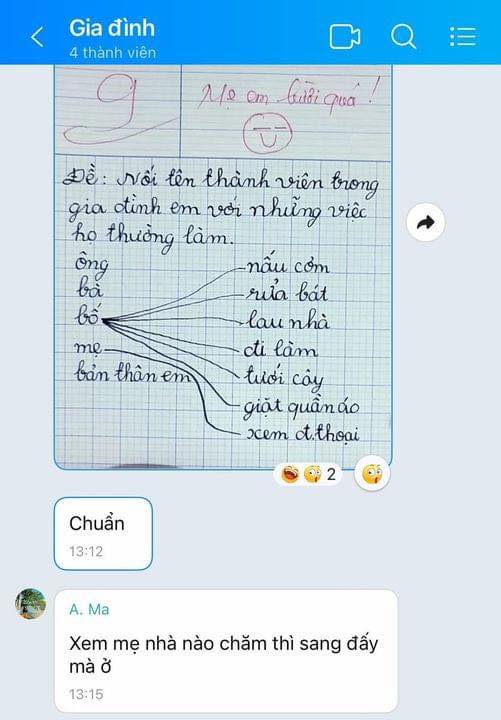 Gia đình
4 thành viên
9
Mẹ em lười quá!
Đề: Nối tên thành viên trong
gia đình em với những việc
họ thường làm.
ông
bà
bố
mẹ
bản thân em
nấu cơm
rửa bát
lau nhà
đi làm
tưới cây
giặt quần áo
xem đ.thoại
2
Chuẩn
13:12
A. Ma
Xem mẹ nhà nào chăm thì sang đấy
mà ở
13:15